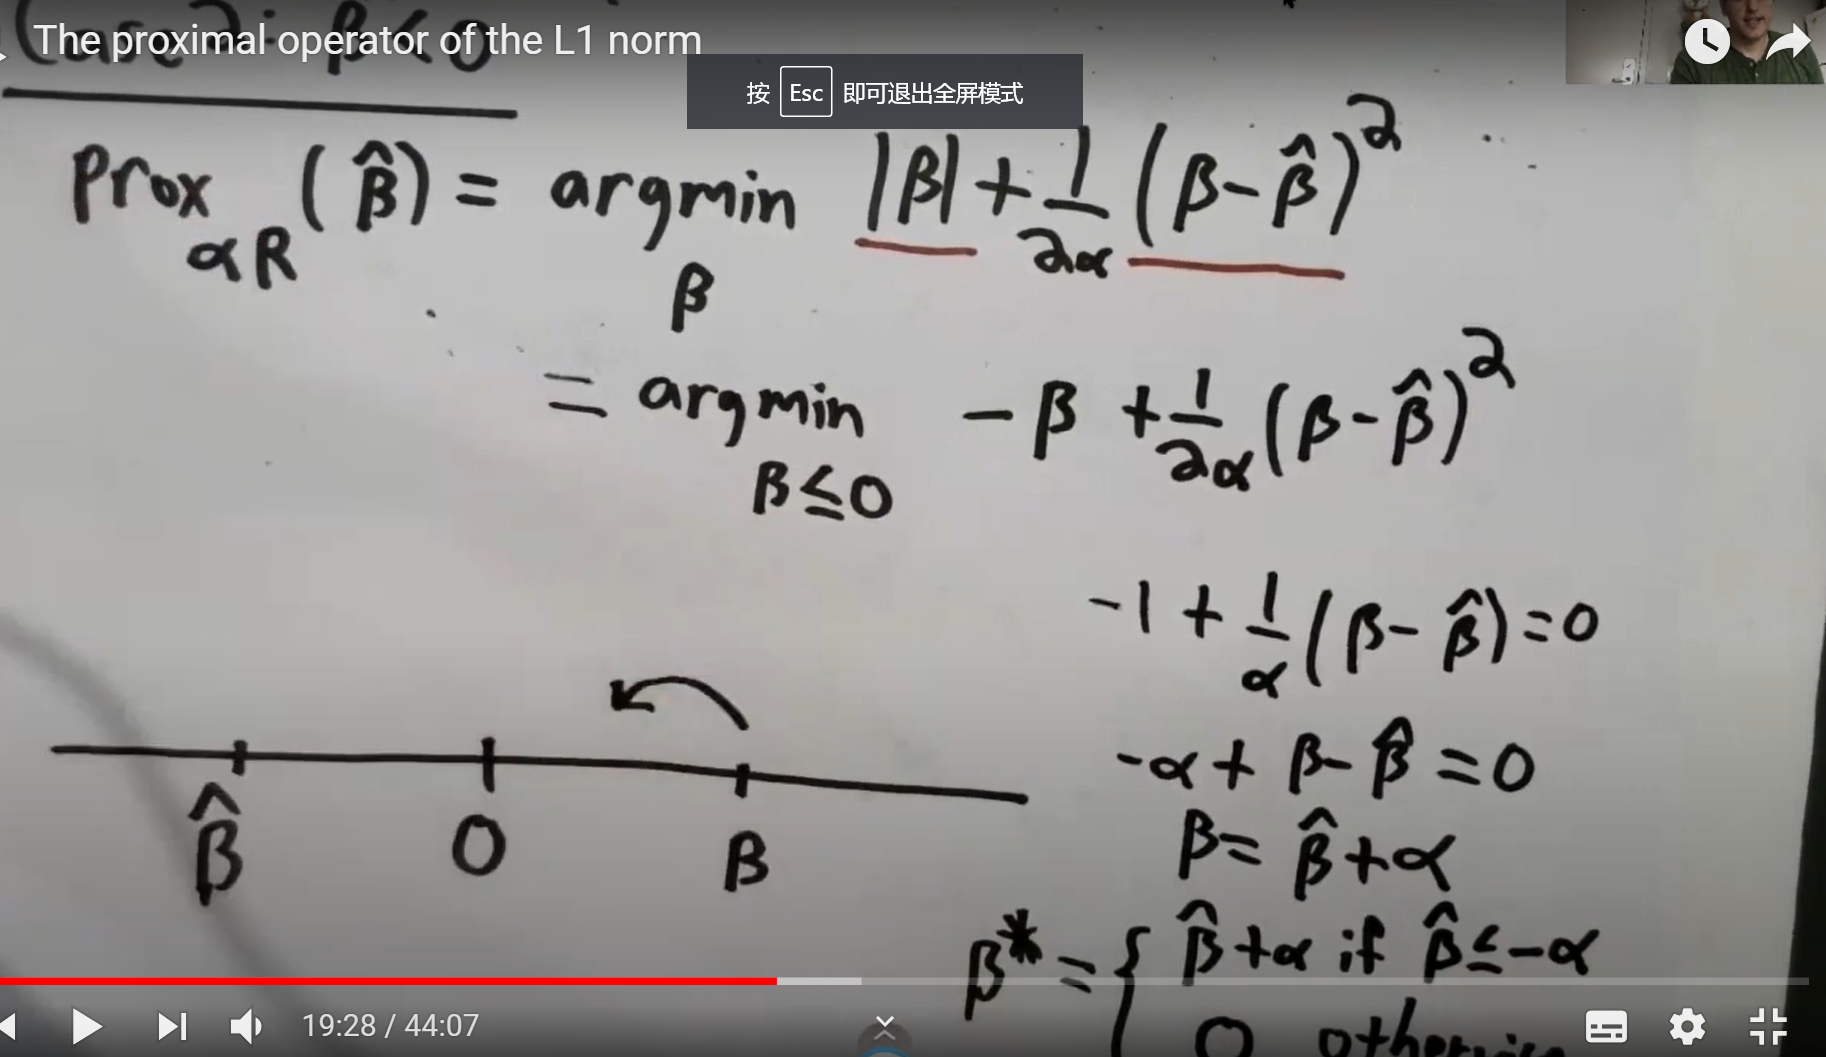 The proximal operator of the L1 norm
按 Esc 即可退出全屏模式
Prox_{αR}(β̂) = argmin_β |β| + 1/2α (β-β̂)²
= argmin_{β≤0} -β + 1/2α (β-β̂)²
-1 + 1/α (β-β̂) = 0
-α + β-β̂ = 0
β̂ 0 β
β = β̂+α
β* = { β̂+α if β̂≤-α
0
19:28 / 44:07